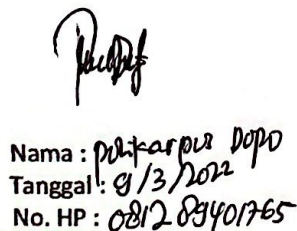 Nama : polikarpus Dopo
Tanggal : 9/3/2022
No. HP : 081289401765